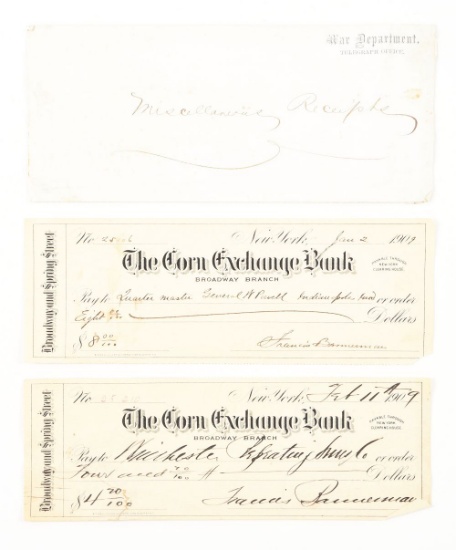 War Department,
TELEGRAPH OFFICE.
Miscellaneous Receipts
Broadway and Spring Street
No. New York Jan 2 1909
The Corn Exchange Bank
BROADWAY BRANCH
PAYABLE THROUGH
NEW YORK
CLEARING HOUSE
Pay to Quarter master General or order
Eight Dollars
$8 00/100 Francis Bannerman
Broadway and Spring Street
No. New York, Feb 11th 1909
The Corn Exchange Bank
BROADWAY BRANCH
PAYABLE THROUGH
NEW YORK
CLEARING HOUSE
Pay to Winchester Repeating Arms Co or order
Four and 20/100 Dollars
$4 20/100 Francis Bannerman